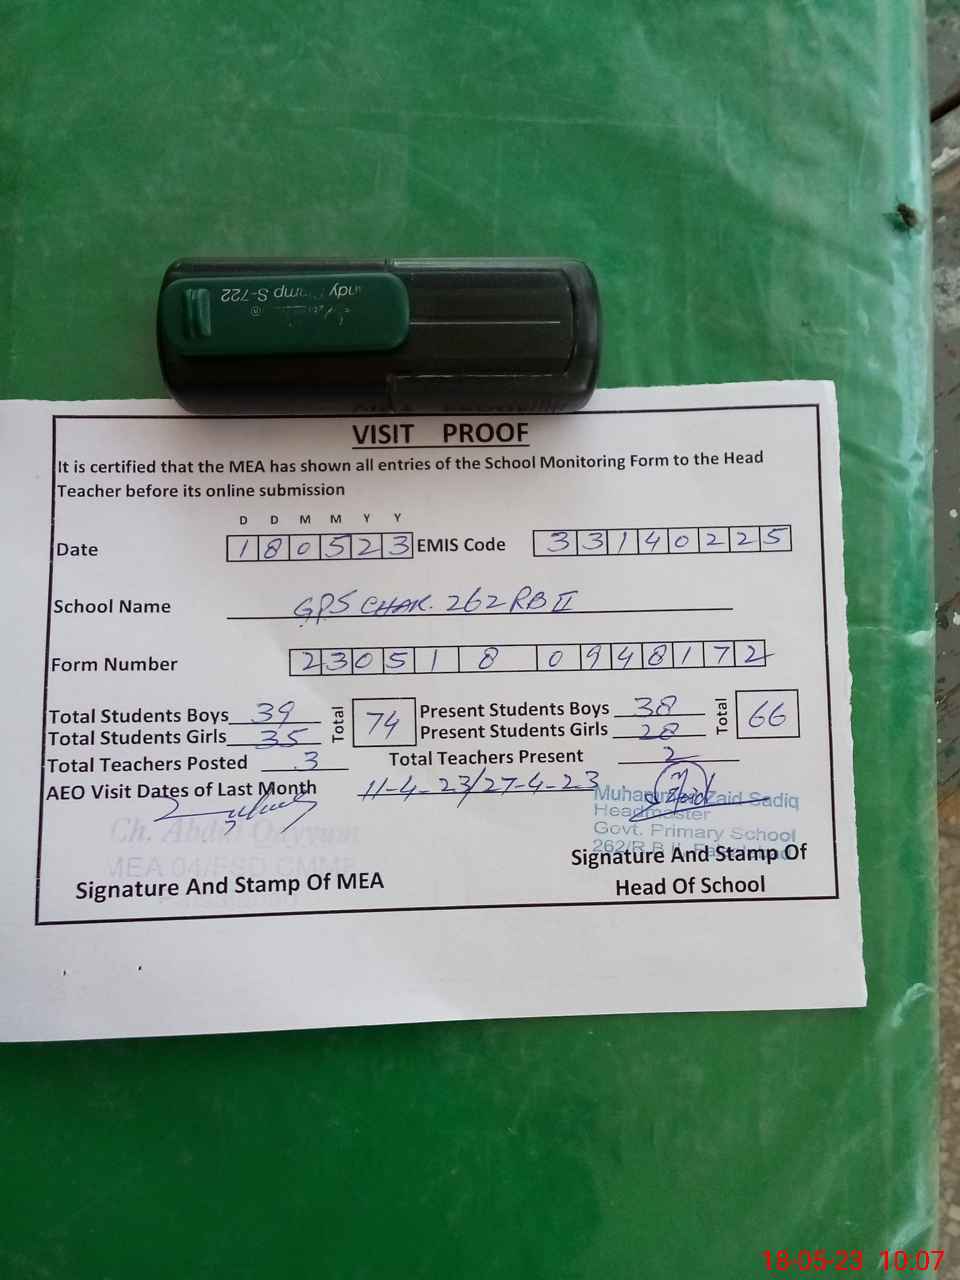 S-722
VISIT PROOF
It is certified that the MEA has shown all entries of the School Monitoring Form to the Head
Teacher before its online submission
D D M M Y Y
Date 1 8 0 5 2 3 EMIS Code 3 3 1 4 0 2 2 5
School Name GPS CHAK. 262 RB II
Form Number 2 3 0 5 1 8 0 9 4 8 1 7 2
Total Students Boys 39 Total 74 Present Students Boys 38 Total 66
Total Students Girls 35 Present Students Girls 28
Total Teachers Posted 3 Total Teachers Present 2
AEO Visit Dates of Last Month 11-4-23/27-4-23
Muhammad Zaid Sadiq
Headmaster
Govt. Primary School
262/R.B II,
Ch. Abdul Qayyum
MEA 04/FSD CMMF
Signature And Stamp Of MEA
Signature And Stamp Of
Head Of School
18-05-23 10:07